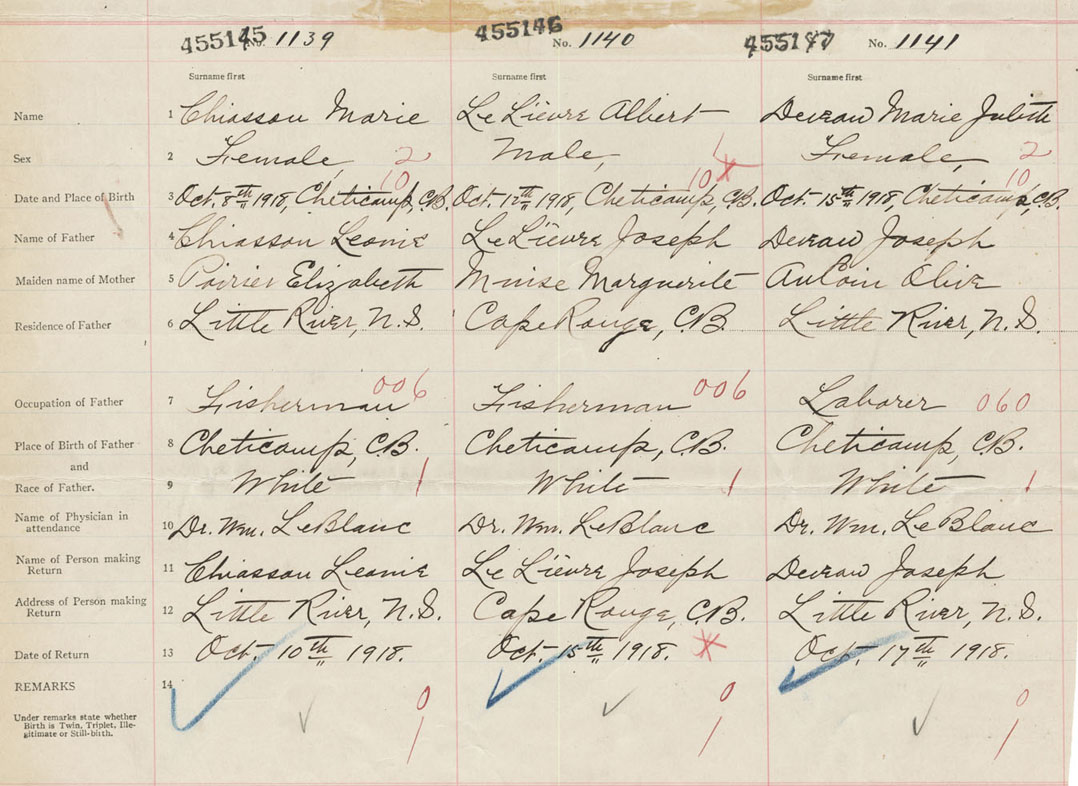 455145 No. 1139 455146 No. 1140 455147 No. 1141
Surname first Surname first Surname first
Name 1 Chiasson Marie Le Lièvre Albert Deveau Marie Juliette
Sex 2 Female, 2 Male, 1 Female, 2
10 10 10
Date and Place of Birth 3 Oct. 8th 1918, Cheticamp, C.B. Oct. 12th 1918, Cheticamp, C.B. Oct. 15th 1918, Cheticamp, C.B.
Name of Father 4 Chiasson Leonie Le Lièvre Joseph Deveau Joseph
Maiden name of Mother 5 Poirier Elizabeth Muise Marguerite AuCoin Olive
Residence of Father 6 Little River, N.S. Cape Rouge, C.B. Little River, N.S.
Occupation of Father 7 Fisherman 006 Fisherman 006 Laborer 060
Place of Birth of Father 8 Cheticamp, C.B. Cheticamp, C.B. Cheticamp, C.B.
and
Race of Father. 9 White 1 White 1 White 1
Name of Physician in
attendance 10 Dr. Wm. LeBlanc Dr. Wm. LeBlanc Dr. Wm. LeBlanc
Name of Person making
Return 11 Chiasson Leonie Le Lièvre Joseph Deveau Joseph
Address of Person making
Return 12 Little River, N.S. Cape Rouge, C.B. Little River, N.S.
Date of Return 13 Oct. 10th 1918. Oct. 15th 1918. Oct. 17th 1918.
REMARKS 14 0 0 0
Under remarks state whether
Birth is Twin, Triplet, Ille-
gitimate or Still-birth. 1 1 1